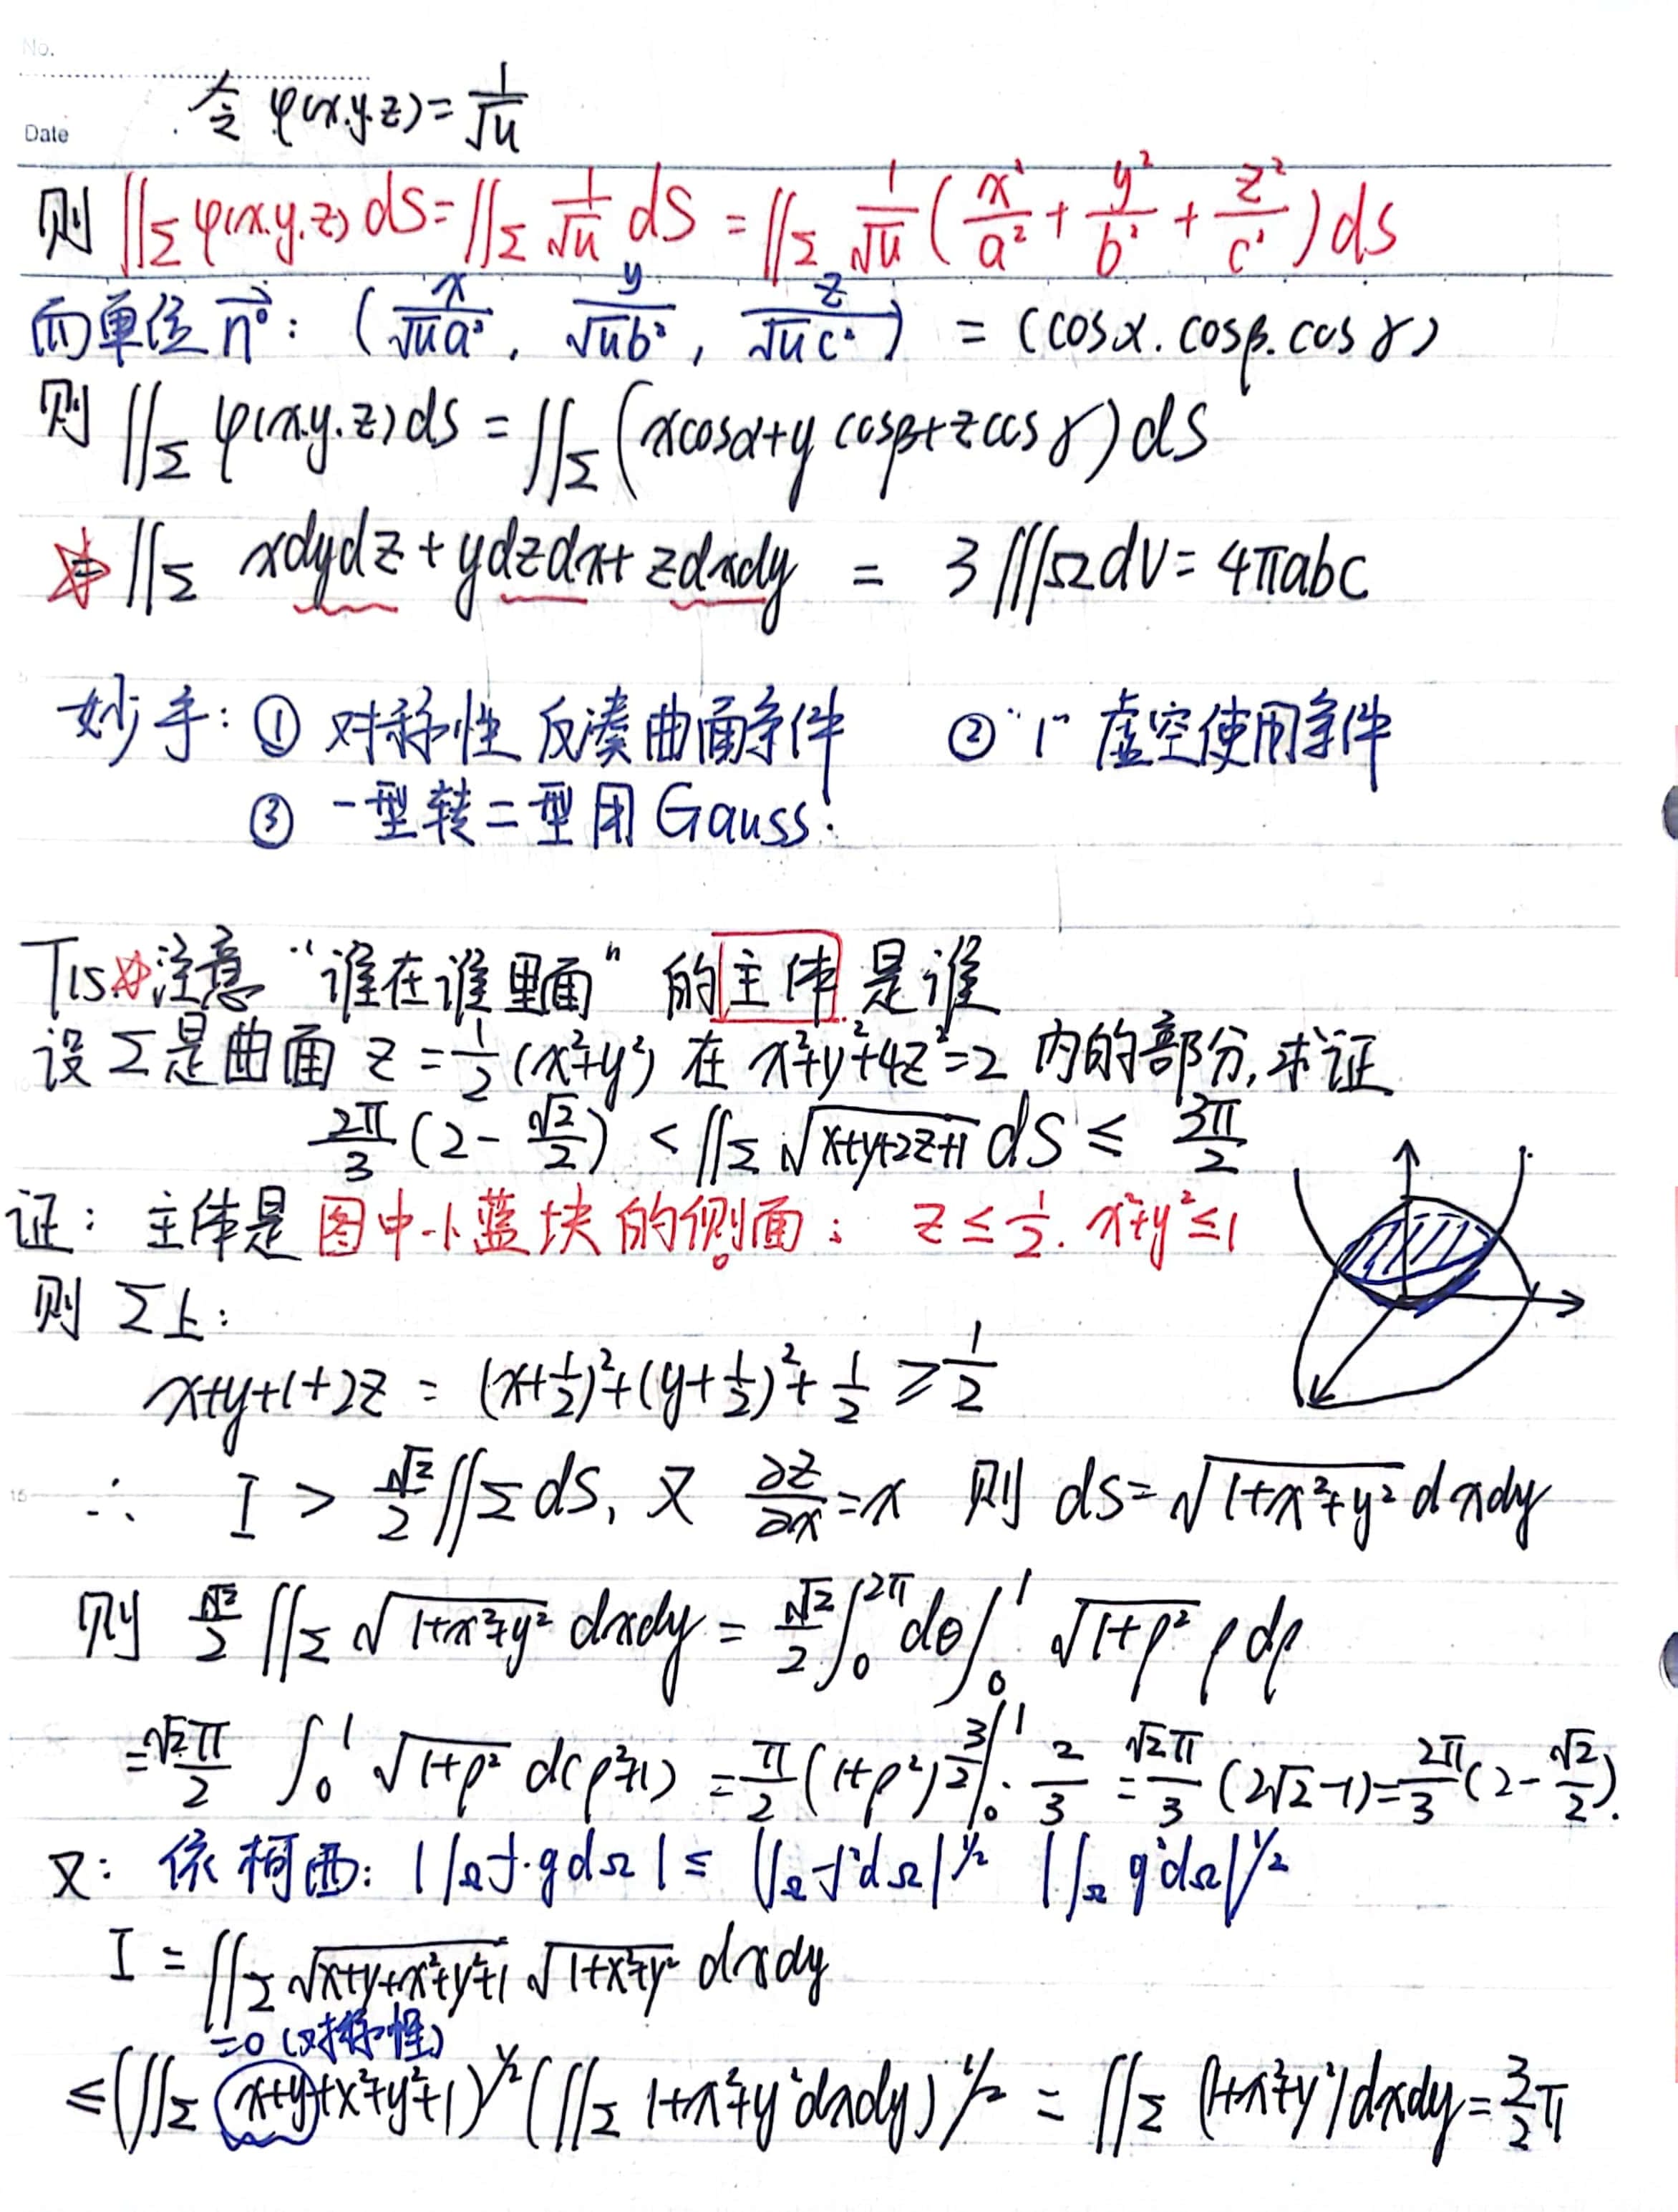 No.
Date
令 φ(x.y.z)=1/√u
则 ∬Σ φ(x.y.z) dS=∬Σ 1/√u dS = ∬Σ 1/√u (x²/a² + y²/b² + z²/c²) dS
而单位 n⃗°: (x/√ua², y/√ub², z/√uc²) = (cosα. cosβ. cosγ)
则 ∬Σ φ(x.y.z) dS = ∬Σ (xcosα+y cosβ+zcosγ) dS
= ∬Σ xdydz + ydzdx + zdxdy = 3∭Ω dV = 4πabc
妙手: ① 对称性 反凑曲面条件 ② "1" 虚空使用条件
③ 一型转二型用 Gauss.
T15 ☆注意 "谁在谁里面" 的主体是谁
设 Σ是曲面 z=1/2(x²+y²) 在 x²+y²+4z²=2 内的部分,求证
2π/3 (2-√2/2) < ∬Σ √(x+y+2z+1) dS ≤ 3π/2
证: 主体是图中小蓝块的侧面: z≤1/2. x²+y²≤1
则 Σ上:
x+y+1+2z = (x+1/2)²+(y+1/2)²+1/2 ≥ 1/2
∴ I > √2/2 ∬Σ dS, 又 ∂z/∂x=x 则 dS=√(1+x²+y²) dxdy
则 √2/2 ∬Σ √(1+x²+y²) dxdy = √2/2 ∫₀^2π dθ ∫₀^1 √(1+ρ²) ρdρ
=√2π/2 ∫₀^1 √(1+ρ²) d(ρ²+1) = π/2 (1+ρ²)^3/2 |₀^1 · 2/3 = √2π/3 (2√2-1)=2π/3(2-√2/2).
又: 依柯西: |∫Ω f·g dΩ| ≤ |∫Ω f²dΩ|^1/2 |∫Ω g²dΩ|^1/2
I = ∬Σ √(x+y+x²+y²+1) √(1+x²+y²) dxdy
=0 (对称性)
≤(∬Σ x+y+x²+y²+1)^1/2 (∬Σ 1+x²+y²dxdy)^1/2 = ∬Σ (1+x²+y²)dxdy=3/2π